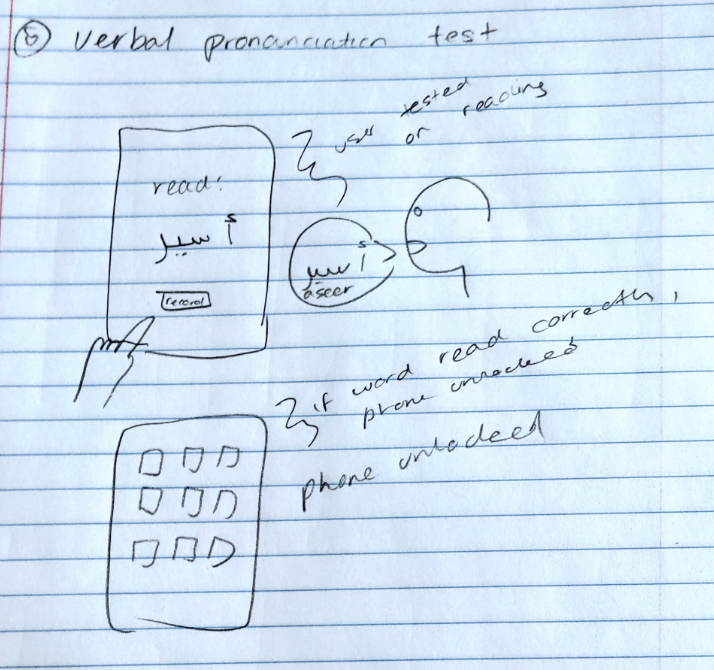 ⑤ verbal pronunciation test
user tested
on reading
read:
أسير
record
أسير
aseer
if word read correctly,
phone unlocked
phone unlocked